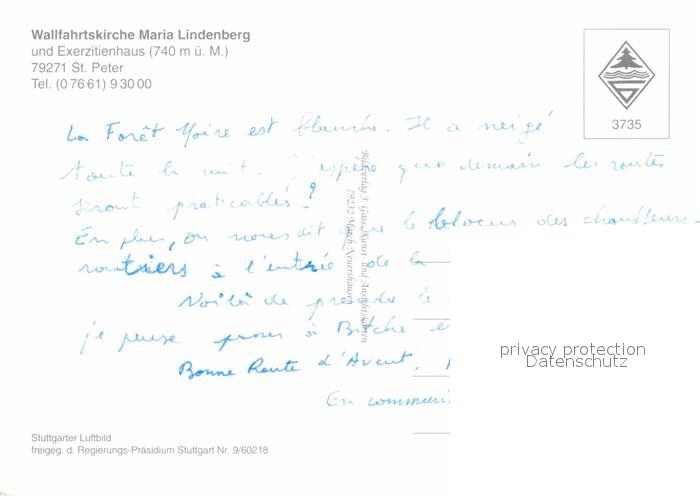 Wallfahrtskirche Maria Lindenberg
und Exerzitienhaus (740 m ü. M.)
79271 St. Peter
Tel. (0 76 61) 9 30 00
3735
La Forêt Noire est blanche. Il a neigé
toute la nuit. J'espère que demain les routes
seront praticables !
En plus, on nous dit que le blocus des chauffeurs-
routiers à l'entrée de la
Voilà de
je puisse à Bitche
Bonne Route d'Avent,
En communi
79232 March-Neuershausen
privacy protection
Datenschutz
Stuttgarter Luftbild
freigeg. d. Regierungs-Präsidium Stuttgart Nr. 9/60218